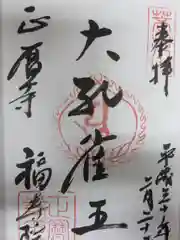 奉拝
平成三十年
二月二十
大孔雀王
正暦寺
福寿院